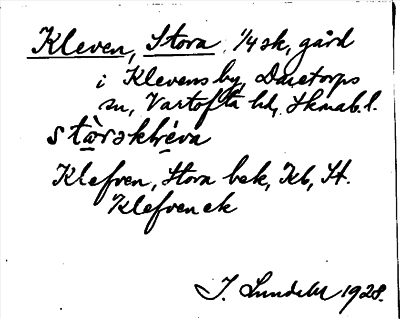 Kleven, Stora, 1/4 sk, gård
i Klevens by, Daretorps
sn, Vartofta hd, Skarab. l.
stòrəkléva
Klefven, Stora bek, Kb, St.
Klefven ek
J. Lundahl 1928.